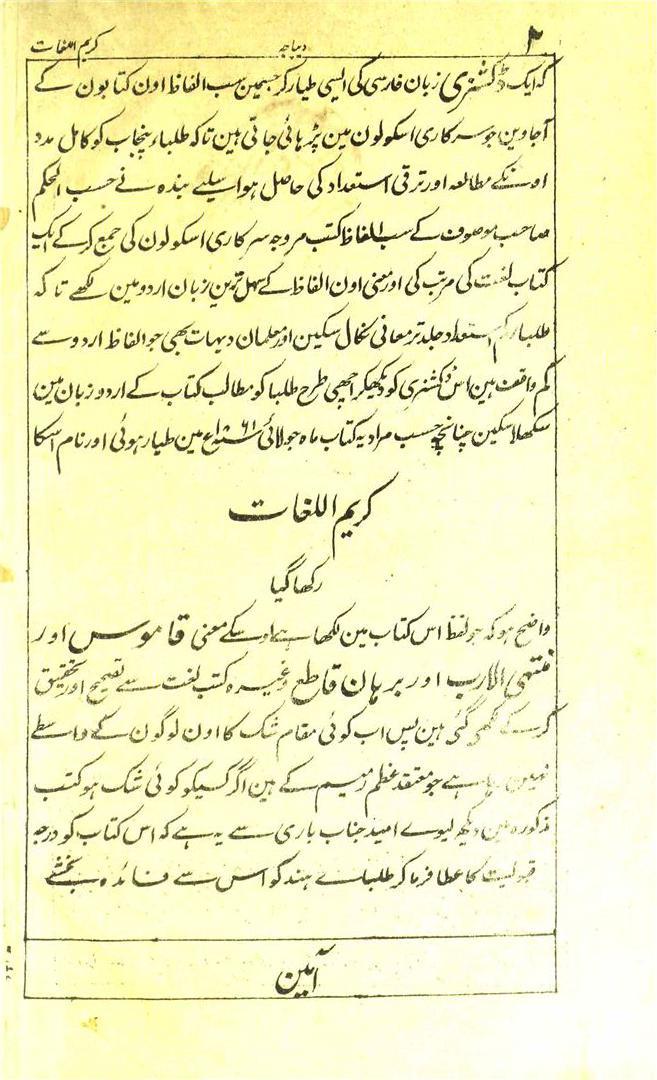 ۲ دیباجہ کریم اللغات
کہ ایک ڈکشنری زبان فارسی کی ایسی طیار کر جسمین سب الفاظ اون کتابون کے
آجاوین جو سرکاری اسکولون مین پڑہائی جاتی ہین تاکہ طلباء پنجاب کو کامل مدد
اونکے مطالعہ اور ترقی استعداد کی حاصل ہو اسیلیے بندہ نے حسب الحکم
صاحب موصوف کے سب الفاظ کتب مروجہ سرکاری اسکولون کی جمع کر کے ایک
کتاب لغت کی مرتب کی اور معنی اون الفاظ کے سہل ترین زبان اردو مین لکھے تا کہ
طلبا کم استعداد جلد تر معانی نکال سکین اور معلمان دیہات بھی جو الفاظ اردو سے
کم واقف ہین اس ڈکشنری کو دیکھکر اچھی طرح طلبا کو مطالب کتاب کے اردو زبان مین
سکھلا سکین چنانچہ حسب مراد یہ کتاب ماہ جولائی ۱۸۶۱ء مین طیار ہوئی اور نام اسکا
کریم اللغات
رکھا گیا
واضح ہو کہ جو لفظ اس کتاب مین لکھا ہے اوسکے معنی قاموس اور
منتہی الارب اور برہان قاطع وغیرہ کتب لغت سے تصحیح اور تحقیق
کر کے لکھی گئی ہین پس اب کوئی مقام شک کا اون لوگون کے واسطے
نہین رہا ہے جو معتقد عظم رمیم کے ہین اگر کسیکو کوئی شک ہو کتب
مذکورہ مین دیکھ لیوے امید جناب باری سے یہ ہے کہ اس کتاب کو درجہ
قبولیت کا عطا فرما کر طلباے ہند کو اس سے فائدہ بخشے
آمین